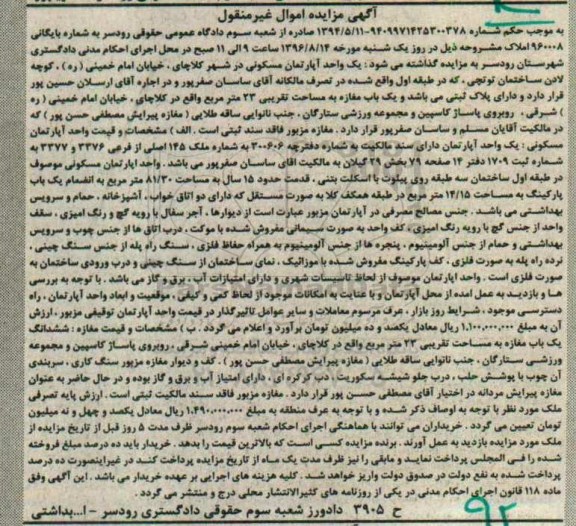 آگهی مزایده اموال غیرمنقول
به موجب حکم شماره ۹۴۰۹۹۷۱۴۲۵۳۰۰۳۷۸-۱۳۹۴/۵/۱۱ صادره از شعبه سوم دادگاه عمومی حقوقی رودسر به شماره بایگانی
۹۶۰۰۰۸ املاک مشروحه ذیل در روز یک شنبه مورخه ۱۳۹۶/۸/۱۴ ساعت ۹ الی ۱۱ صبح در محل اجرای احکام مدنی دادگستری
شهرستان رودسر به مزایده گذاشته می شود : یک واحد آپارتمان مسکونی در شهر کلاچای ، خیابان امام خمینی ( ره ) ، کوچه
لادن ساختمان توتچی ، که در طبقه اول واقع شده در تصرف مالکانه آقای ساسان صفرپور و در اجاره آقای ارسلان حسین پور
قرار دارد و دارای پلاک ثبتی می باشد و یک باب مغازه به مساحت تقریبی ۲۳ متر مربع واقع در کلاچای ، خیابان امام خمینی ( ره
) شرقی ، روبروی پاساژ کاسپین و مجموعه ورزشی ستارگان ، جنب نانوایی ساقه طلایی ( مغازه پیرایش مصطفی حسن پور ) که
در مالکیت آقایان مسلم و ساسان صفرپور قرار دارد . مغازه مزبور فاقد سند ثبتی است . الف ) مشخصات و قیمت واحد آپارتمان
مسکونی : یک واحد آپارتمان دارای سند مالکیت به شماره دفترچه ۳۰۰۶۰۶ به شماره ملک ۱۴۵ اصلی از فرعی ۳۳۷۶ و ۳۳۷۷ به
شماره ثبت ۱۷۰۹ دفتر ۱۴ صفحه ۷۹ بخش ۲۹ گیلان به مالکیت اقای ساسان صفرپور می باشد . واحد اپارتمان مسکونی موصوف
در طبقه اول ساختمان سه طبقه روی پیلوت با اسکلت بتنی ، قدمت حدود ۱۵ سال به مساحت ۸۱/۳۰ متر مربع به انضمام یک باب
پارکینگ به مساحت ۱۴/۱۵ متر مربع در طبقه همکف کلا به صورت مستقل که دارای دو اتاق خواب ، آشپزخانه ، حمام و سرویس
بهداشتی می باشد . جنس مصالح مصرفی در آپارتمان مزبور عبارت است از دیوارها ، آجر سفال با رویه گچ و رنگ امیزی ، سقف
واحد از جنس گچ با رویه رنگ امیزی، کف واحد به صورت سیمانی مفروش شده با موکت ، درب اتاق ها از جنس چوب و سرویس
بهداشتی و حمام از جنس آلومینیوم ، پنجره ها از جنس آلومینیوم به همراه حفاظ فلزی ، سنگ راه پله از جنس سنگ چینی ،
نرده راه پله به صورت فلزی ، کف پارکینگ مفروش شده با موزائیک ، نمای ساختمان از سنگ چینی و درب ورودی ساختمان به
صورت فلزی است . واحد اپارتمان موصوف از لحاظ تاسیسات شهری و دارای امتیازات آب ، برق و گاز می باشد . با توجه به بررسی
ها و بازدید به عمل امده از محل آپارتمان و با عنایت به امکانات موجود از لحاظ کمی و کیفی ، موقعیت و ابعاد واحد آپارتمان ، راه
دسترسی موجود ، شرایط روز بازار ، عرف مرسوم معاملات و سایر عوامل تاثیرگذار در قیمت واحد آپارتمان توقیفی مزبور ، ارزش
آن به مبلغ ۱,۱۰۰,۰۰۰,۰۰۰ ریال معادل یکصد و ده میلیون تومان برآورد و اعلام می گردد . ب ) مشخصات و قیمت مغازه : ششدانگ
یک باب مغازه به مساحت تقریبی ۲۳ متر مربع واقع در کلاچای ، خیابان امام خمینی شرقی ، روبروی پاساژ کاسپین و مجموعه
ورزشی ستارگان ، جنب نانوایی ساقه طلایی ( مغازه پیرایش مصطفی حسن پور ) . کف و دیوار مغازه مزبور سنگ کاری ، سربندی
آن چوب با پوشش حلب ، درب جلو شیشه سکوریت ، درب کرکره ای ، دارای امتیاز آب و برق و گاز بوده و در حال حاضر به عنوان
مغازه پیرایش مردانه در اختیار آقای مصطفی حسن پور قرار دارد . مغازه مزبور فاقد سند مالکیت ثبتی است . ارزش پایه تصرفی
ملک مورد نظر با توجه به اوصاف ذکر شده و با توجه به عرف منطقه به مبلغ ۱,۴۹۰,۰۰۰,۰۰۰ ریال معادل یکصد و چهل و نه میلیون
تومان تعیین می گردد . خریداران می توانند با هماهنگی اجرای احکام شعبه سوم رودسر ظرف مدت ۵ روز قبل از تاریخ مزایده از
ملک مورد مزایده بازدید به عمل آورند . برنده مزایده کسی است که بالاترین قیمت را بدهد . خریدار باید ده درصد مبلغ فروخته
شده را فی المجلس پرداخت نماید و مابقی را نیز ظرف مدت یک ماه از تاریخ مزایده پرداخت کند در غیراینصورت ده درصد
پرداخت شده به نفع دولت در صندوق دولت واریز خواهد شد . کلیه هزینه های اجرایی بر عهده خریدار می باشد . این آگهی وفق
ماده ۱۱۸ قانون اجرای احکام مدنی در یکی از روزنامه های کثیرالانتشار محلی درج و منتشر می گردد .
ح ۳۹۰۵ دادورز شعبه سوم حقوقی دادگستری رودسر - ا...بداشتی
۹۲